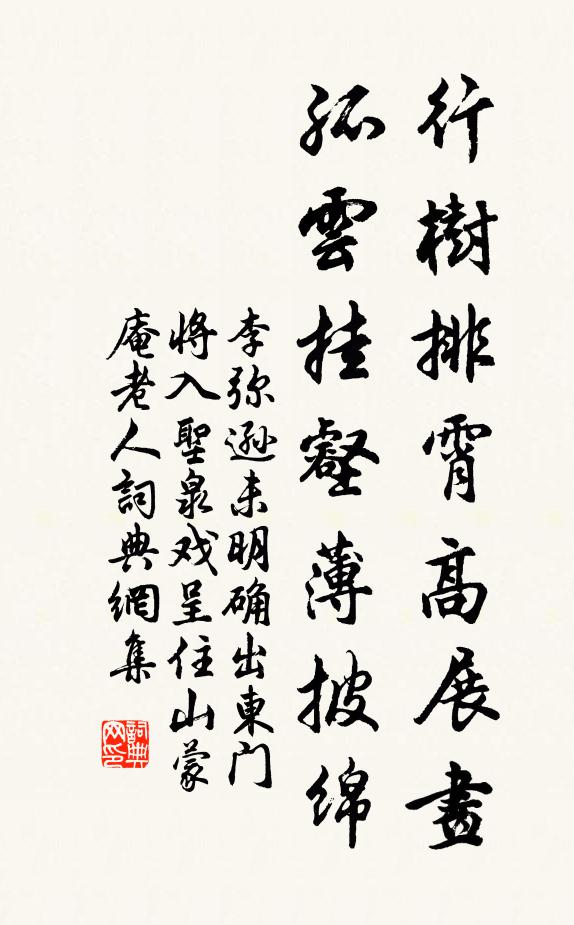 行樹排霄高展畫
孤雲挂壑薄披綿
李弥遜未明确出東门
将入聖泉戏呈住山蒙
庵老人詞典網集
詞典
网印